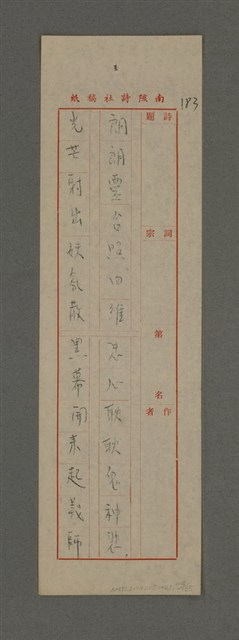 南陔詩社稿紙
183
詩題
詞宗
第 名
作者
朗朗靈台照四維 忠心耿耿鬼神悲
光芒射出妖氛散 黑幕開來起義師